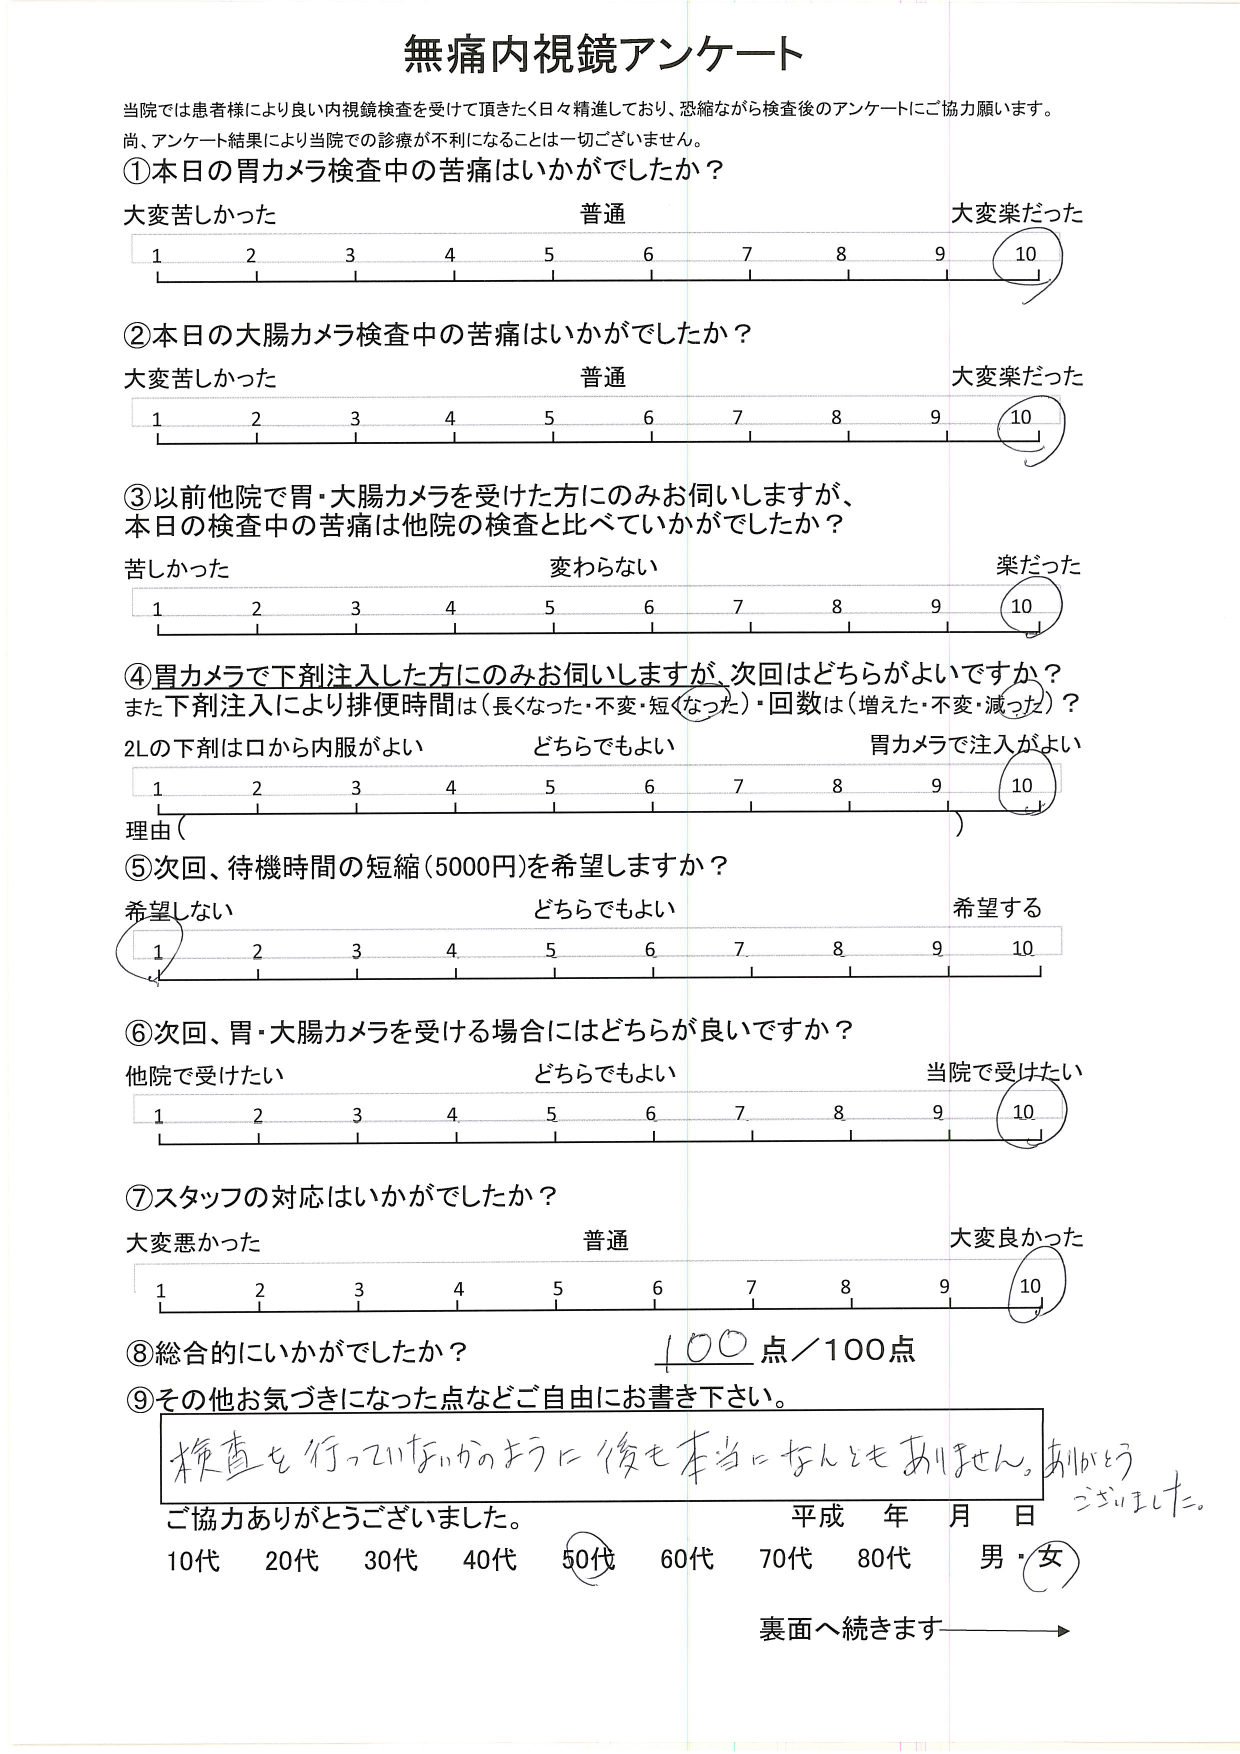 無痛内視鏡アンケート
当院では患者様により良い内視鏡検査を受けて頂きたく日々精進しており、恐縮ながら検査後のアンケートにご協力願います。
尚、アンケート結果により当院での診療が不利になることは一切ございません。
①本日の胃カメラ検査中の苦痛はいかがでしたか？
大変苦しかった 普通 大変楽だった
1 2 3 4 5 6 7 8 9 10
②本日の大腸カメラ検査中の苦痛はいかがでしたか？
大変苦しかった 普通 大変楽だった
1 2 3 4 5 6 7 8 9 10
③以前他院で胃・大腸カメラを受けた方にのみお伺いしますが、
本日の検査中の苦痛は他院の検査と比べていかがでしたか？
苦しかった 変わらない 楽だった
1 2 3 4 5 6 7 8 9 10
④胃カメラで下剤注入した方にのみお伺いしますが、次回はどちらがよいですか？
また下剤注入により排便時間は（長くなった・不変・短くなった）・回数は（増えた・不変・減った）？
2Lの下剤は口から内服がよい どちらでもよい 胃カメラで注入がよい
1 2 3 4 5 6 7 8 9 10
理由（ ）
⑤次回、待機時間の短縮（5000円）を希望しますか？
希望しない どちらでもよい 希望する
1 2 3 4 5 6 7 8 9 10
⑥次回、胃・大腸カメラを受ける場合にはどちらが良いですか？
他院で受けたい どちらでもよい 当院で受けたい
1 2 3 4 5 6 7 8 9 10
⑦スタッフの対応はいかがでしたか？
大変悪かった 普通 大変良かった
1 2 3 4 5 6 7 8 9 10
⑧総合的にいかがでしたか？ 100 点／100点
⑨その他お気づきになった点などご自由にお書き下さい。
検査を行っていないかのように後も本当になんともありません。ありがとう
ございました。
ご協力ありがとうございました。 平成 年 月 日
10代 20代 30代 40代 50代 60代 70代 80代 男・女
裏面へ続きます